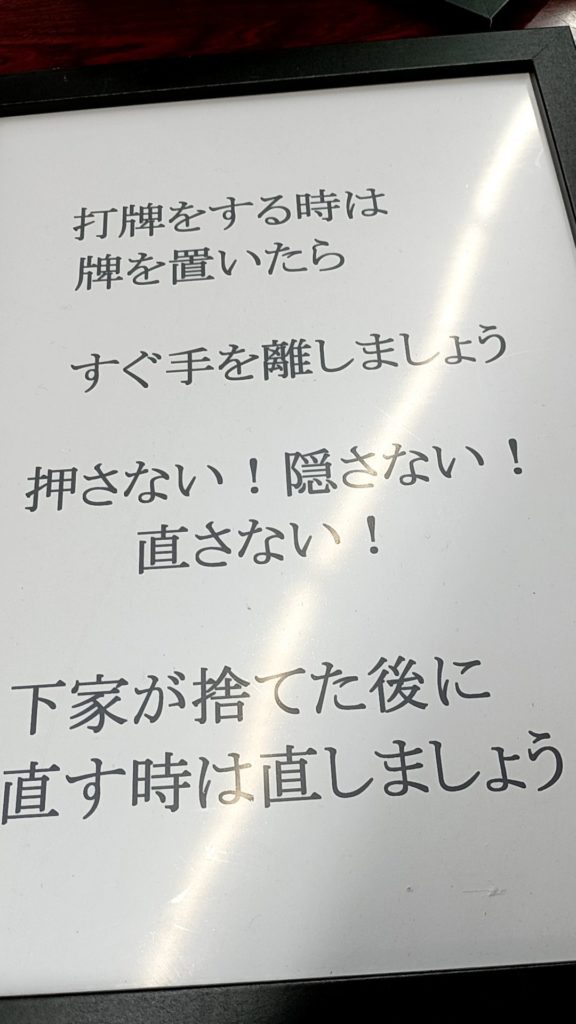 打牌をする時は
牌を置いたら
すぐ手を離しましょう
押さない！隠さない！
直さない！
下家が捨てた後に
直す時は直しましょう